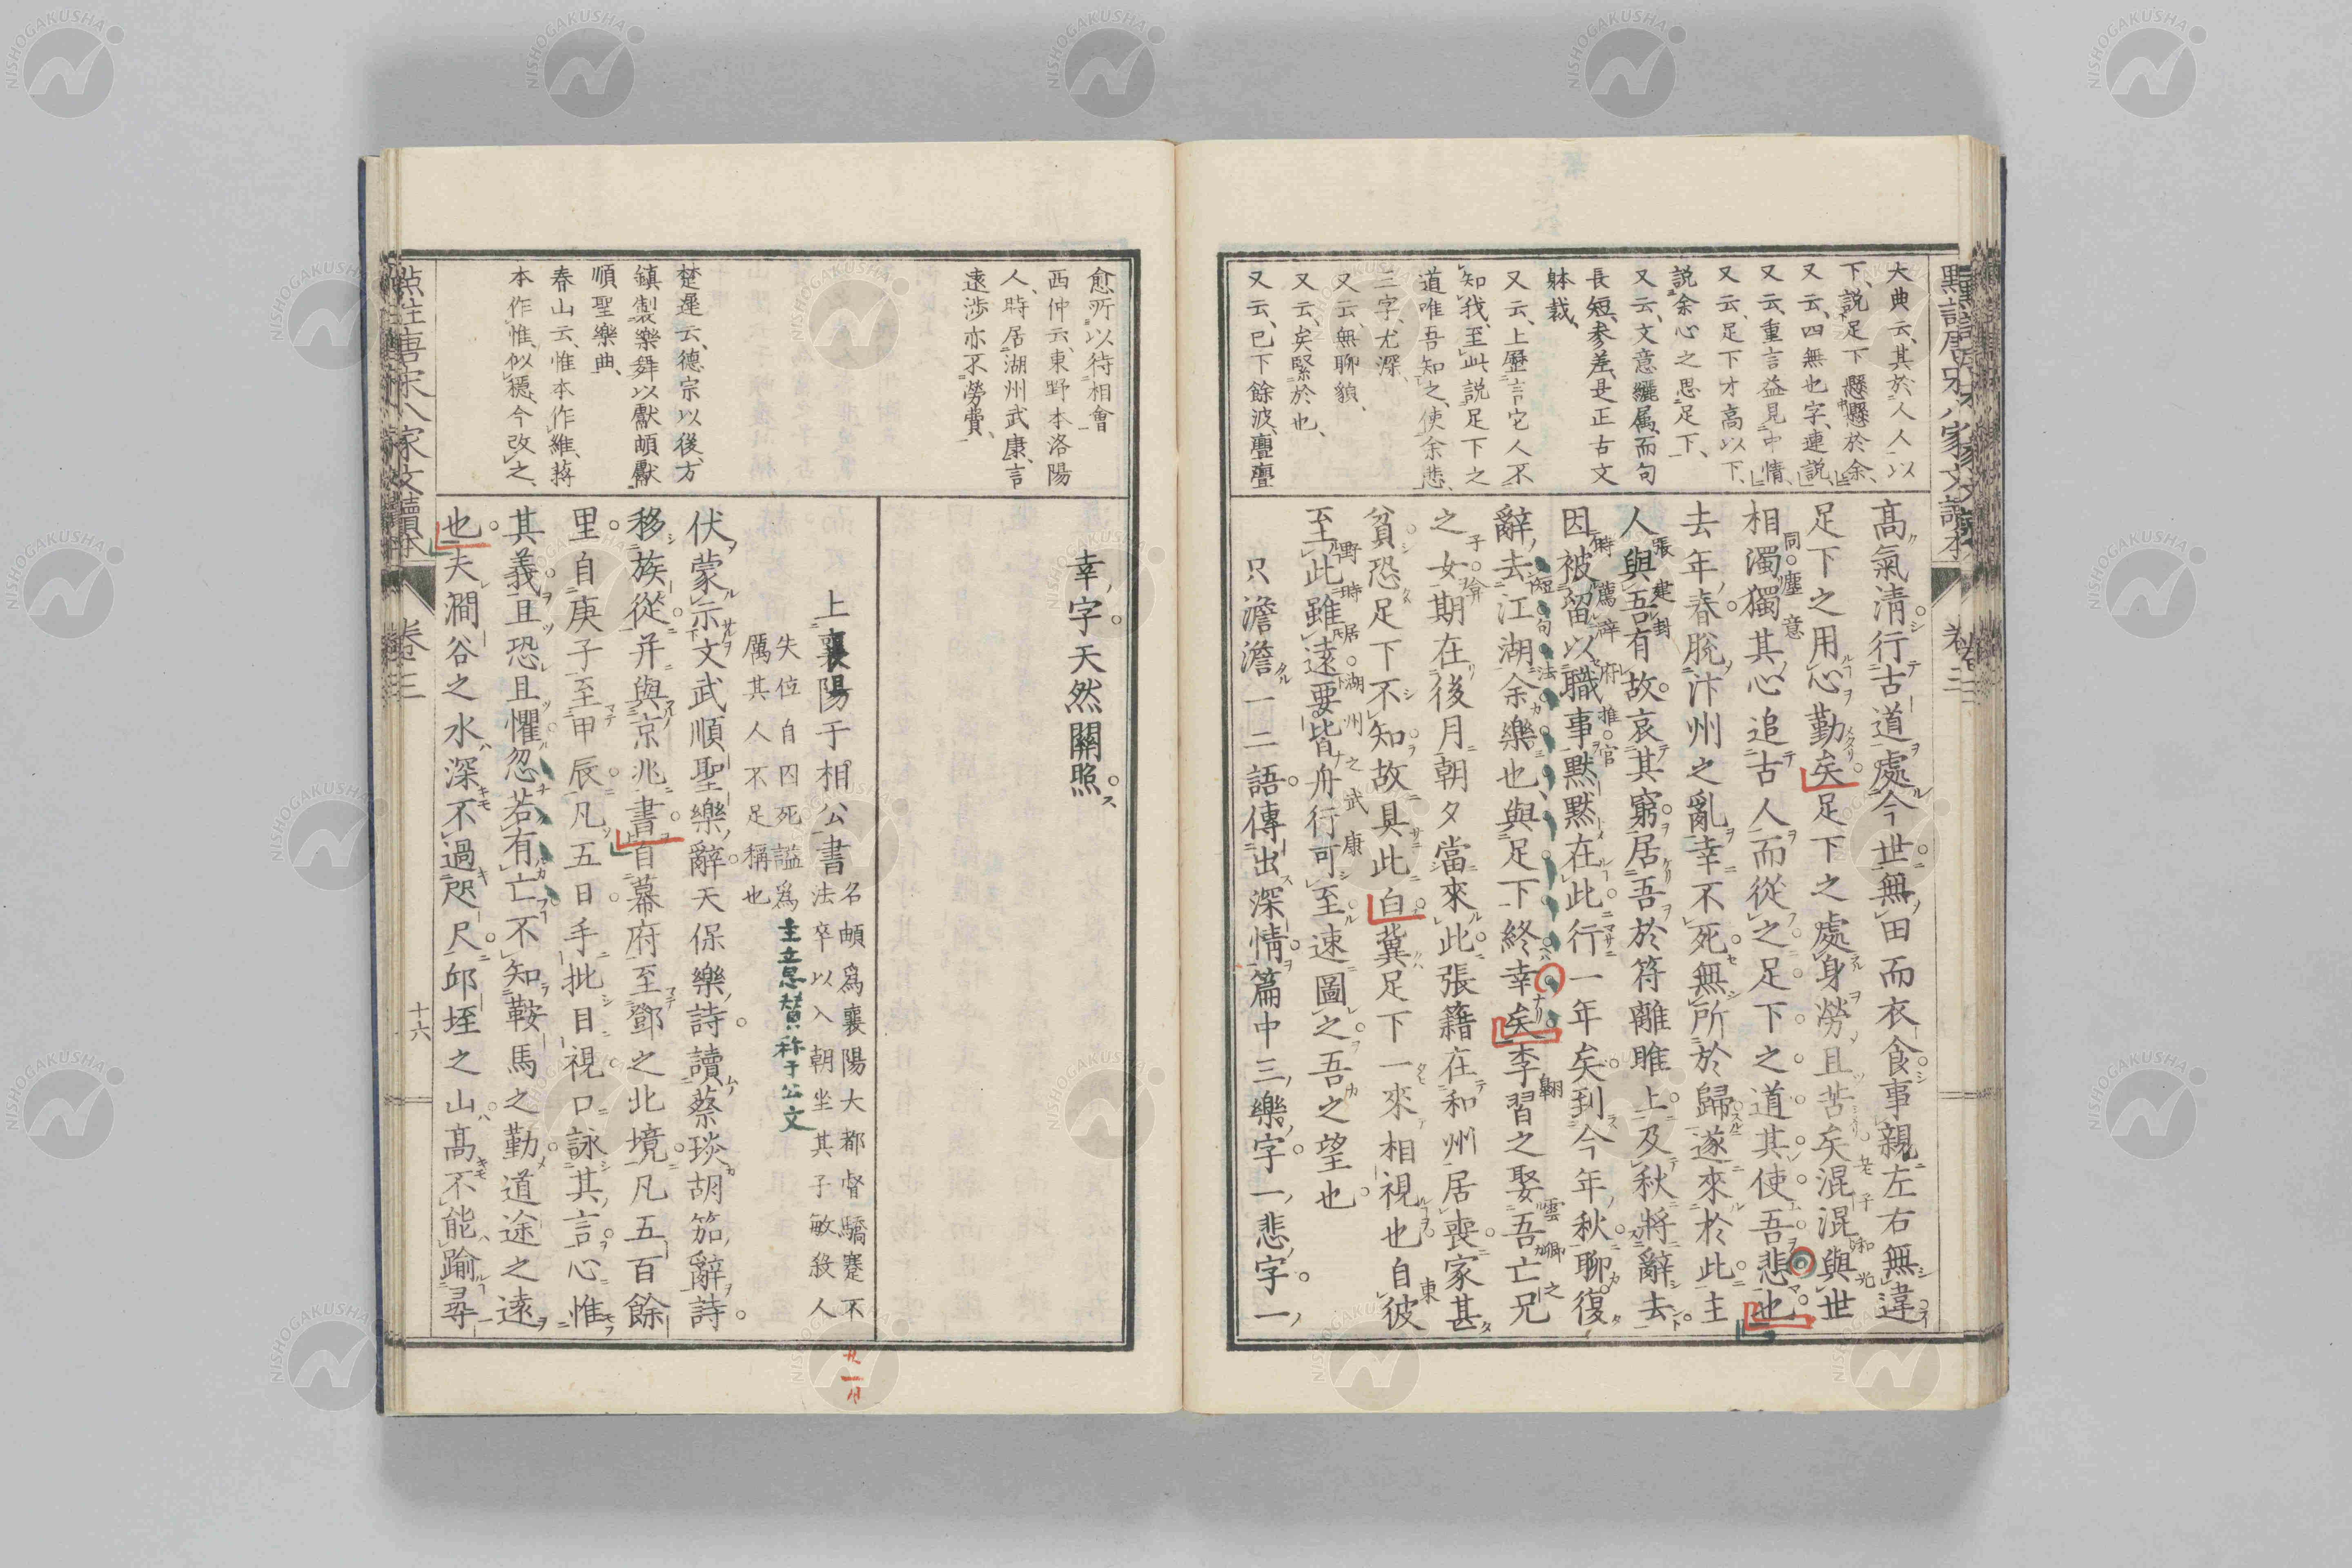 點註唐宋八家文讀本
卷三
大典云、其於人人以
下、説足下懸懸於余、
又云、四無也字、連説、
又云、重言益見中情、
又云、足下才高以下、
説余心之思足下、
又云、文意纚属、而句
長短、参差、是正古文
躰裁、
又云、上歷言它人不
知我、至此説足下之
道唯吾知之、使余悲、
三字、尤深、
又云、無聊貌、
又云、矣緊於也、
又云、已下餘波、亹亹
高氣清行古道處今世無田而衣食事親左右無違
足下之用心勤矣足下之處身勞且苦矣混混與世
相濁獨其心追古人而從之足下之道其使吾悲也
去年春脫汴州之亂幸不死無所於歸遂來於此主
人與吾有故哀其窮居吾於符離睢上及秋將辭去
因被留以職事默默在此行一年矣到今年秋聊復
辭去江湖余樂也與足下終幸矣李習之娶吾亡兄
之女期在後月朝夕當來此張籍在和州居喪家甚
貧恐足下不知故具此白冀足下一來相視也自彼
至此雖遠要皆舟行可至速圖之吾之望也
只澹澹一二語傳出深情篇中三樂字一悲字一
同塵意
老子和光
張建封
時薦辟府推官
短句法
翺
雲卿之
子弇
東
野時居湖州之武康
愈所以待相會
西仲云、東野本洛陽
人、時居湖州武康、言
遠渉亦不勞費、
楚遲云、德宗以後、方
鎮製樂舞以獻頔獻
順聖樂曲、
春山云、惟本作維、蔣
本作惟、似穩、今改之、
幸字天然關照
上襄陽于相公書
名頔爲襄陽大都督驕蹇不
法卒以入朝坐其子敏殺人
失位自囚死謚爲
厲其人不足稱也
主意賛称于公文
伏蒙示文武順聖樂辭天保樂詩讀蔡琰胡笳辭詩
移族從并與京兆書自幕府至鄧之北境凡五百餘
里自庚子至甲辰凡五日手披目視口詠其言心惟
其義且恐且懼忽若有亡不知鞍馬之勤道途之遠
也夫澗谷之水深不過咫尺邱垤之山高不能踰尋
点註唐宋八家文讀本
卷三
十六